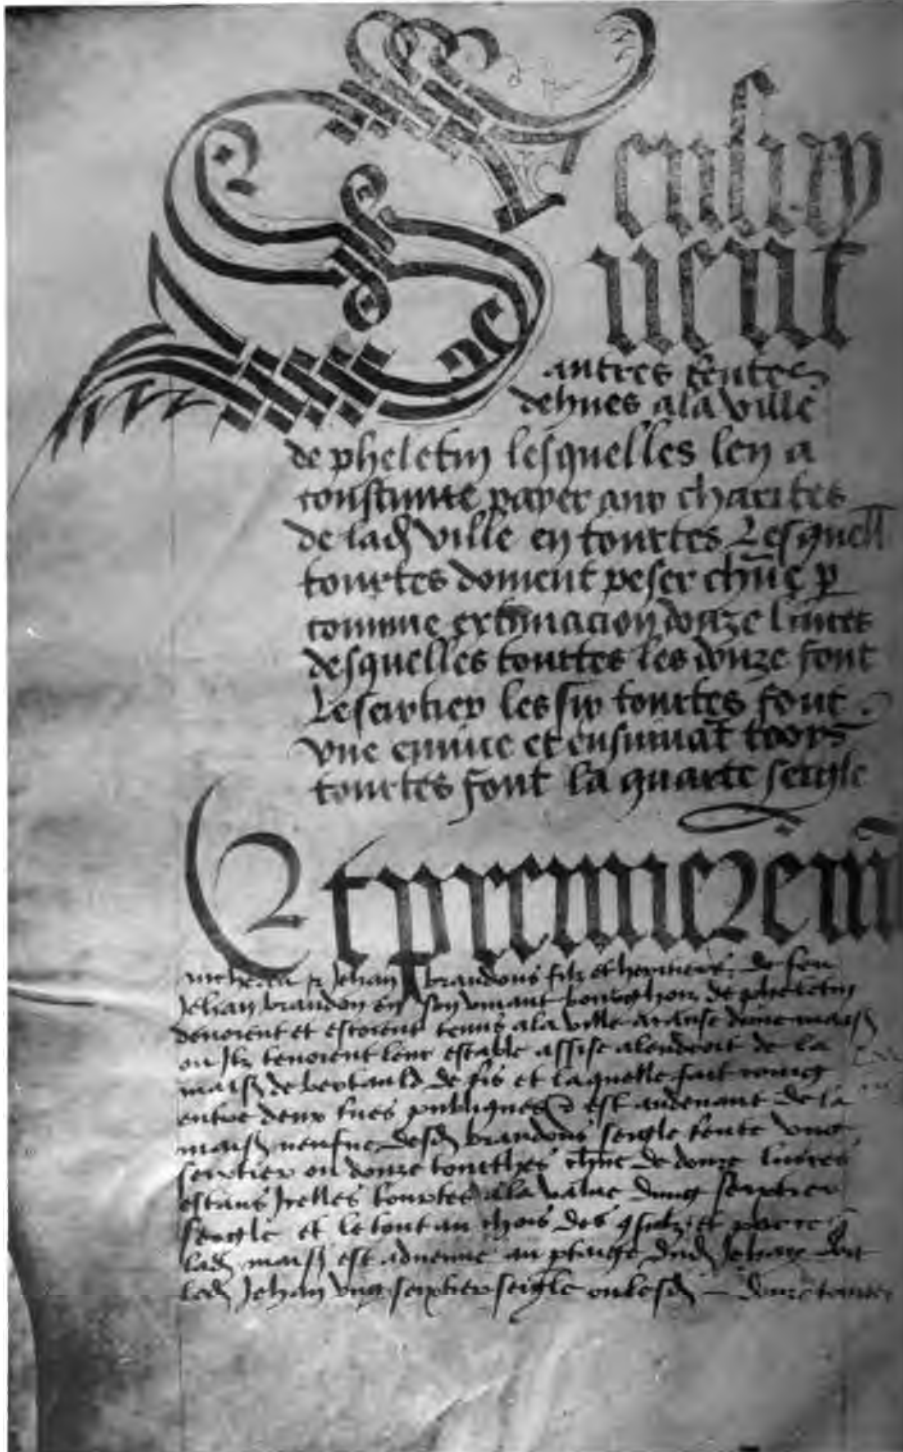 Sensuyv
vent
autres rentes
dehues a la ville
de pheletin lesquelles len a
coustume payer aux charites
de lad ville en tourtes Lesquell
tourtes doivent peser chūe p
comune extimacion douze livres
desquelles tourtes les douze font
Le sextier les six tourtes font
une emine et ensuivāt troys
tourtes font la quarte seigle
Et premierem̄
Jehan brandons filz et heritiers de feu
Jehan brandon en son vivant bourghois de pheletin
devoient et estoient tenus a la ville a cause dune mais
ou Ilz tenoient leur estable assise alendroit de la
mais de bertauld de fis et laquelle fait
entre deux rues publiques est audevant de la
mais neufve desd brandons seigle rente ung
sextier ou douze tourthes chūe de douze livres
estans Icelles tourtes a la value dung sextier
seigle et le tout au chois des et parce q
lad mais est advenue au dud Jehan doit
led Jehan ung sextier seigle ou lesd douze tourtes